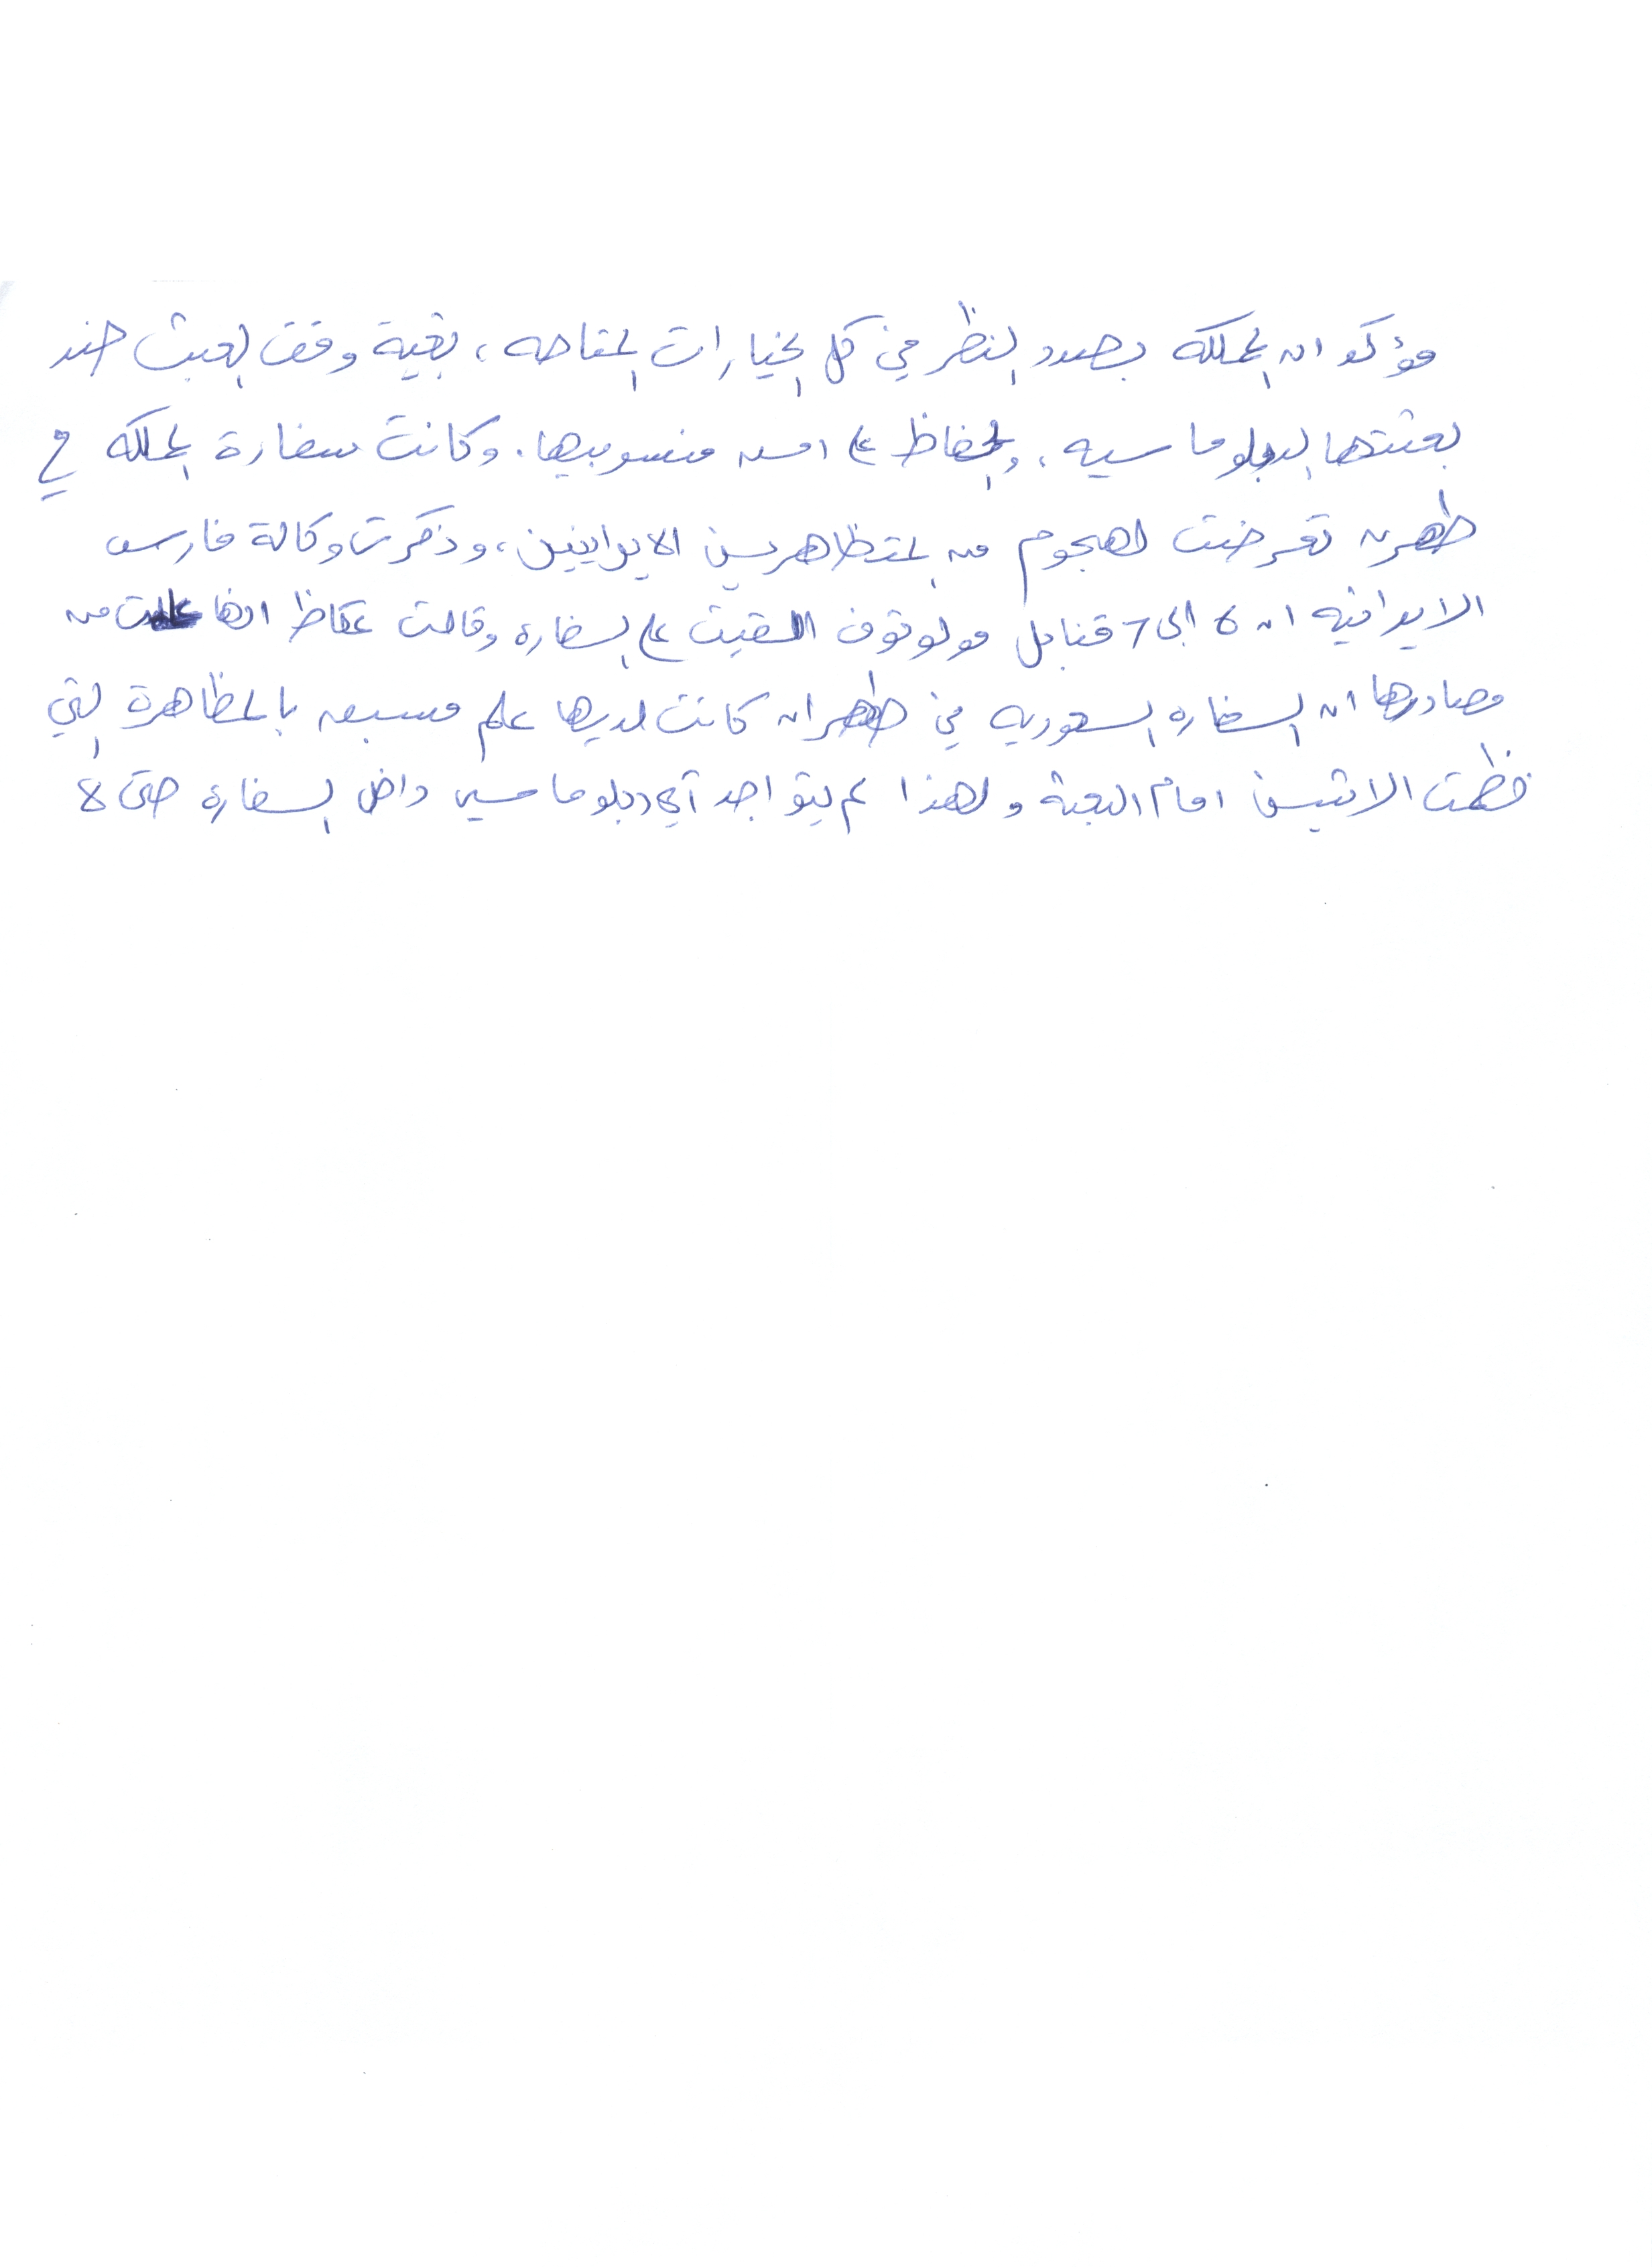 مؤكد ان المملكه بصدد النظر في كل الخيارات المتاحه، بغية وقف العبث ضد
بعثتها الدبلوماسيه، والحفاظ على امن منسوبيها. وكانت سفارة المملكه في
طهرن تعرضت لهجوم من المتظاهرين الايرانيين، وذكرت وكالة فارس
الايرانيه ان 6 الى 7 قنابل مولوتوف القيت على السفاره وقالت عكاظ انها علمت من
مصادرها ان السفاره السعوديه في طهران كانت لديها علم مسبق بالمظاهرة التي
نظمت الاثنين امام البعثة ولهذا لم يتواجد أي دبلوماسي داخل السفاره حتى لا